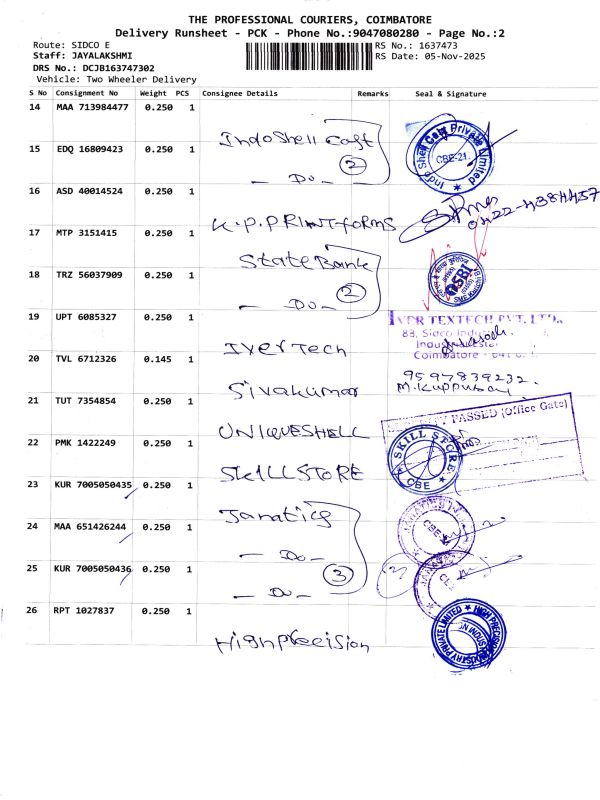 THE PROFESSIONAL COURIERS, COIMBATORE
Delivery Runsheet - PCK - Phone No.:9047080280 - Page No.:2
Route: SIDCO E
RS No.: 1637473
Staff: JAYALAKSHMI
RS Date: 05-Nov-2025
DRS No.: DCJB163747302
Vehicle: Two Wheeler Delivery
S No Consignment No Weight PCS Consignee Details Remarks Seal & Signature
14 MAA 713984477 0.250 1
IndoShell Cast
Indo Shell Cast Private Limited
CBE-21.
15 EDQ 16809423 0.250 1
2
- Do -
16 ASD 40014524 0.250 1
K.P.PRINTforms
0422-4384457
17 MTP 3151415 0.250 1
State Bank
SBI
18 TRZ 56037909 0.250 1
2
- Do -
19 UPT 6085327 0.250 1
IverTech
TEXTECH PVT. LTD.,
83, Sidco
Coimbatore - 641 0
20 TVL 6712326 0.145 1
Sivakumar
9597839232.
M.Kuppusay
21 TUT 7354854 0.250 1
UNIQUESHELL
PASSED (Office Gate)
22 PMK 1422249 0.250 1
SKILLSTORE
SKILL STORE
CBE
23 KUR 7005050435 0.250 1
Janatics
24 MAA 651426244 0.250 1
- Do -
CBE
25 KUR 7005050436 0.250 1
3
- Do -
3
26 RPT 1027837 0.250 1
HighPrecision
HIGH PRECISION INDUSTRY PRIVATE LIMITED